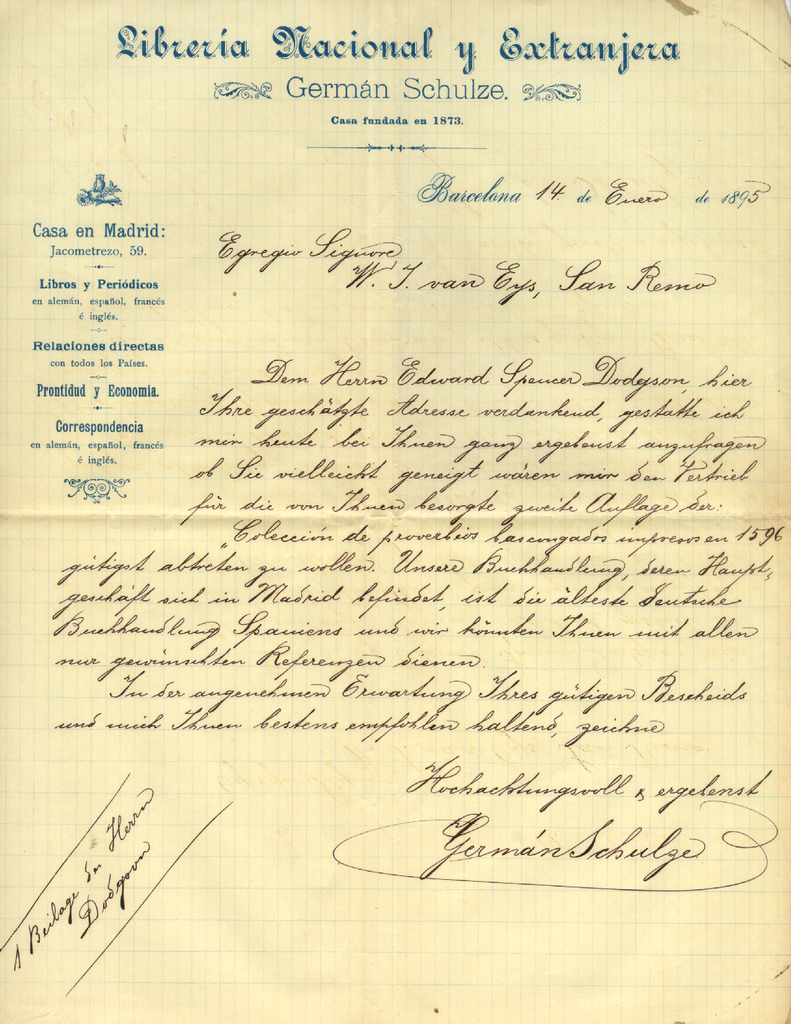 Librería Nacional y Extranjera
Germán Schulze.
Casa fundada en 1873.
Barcelona 14 de Enero de 1895
Casa en Madrid:
Jacometrezo, 59.
Libros y Periódicos
en alemán, español, francés
é inglés.
Relaciones directas
con todos los Países.
Prontidud y Economia.
Correspondencia
en alemán, español, francés
é inglés.
Egregio Signore
W. J. van Eys, San Remo
Dem Herrn Edward Spencer Dodgson, hier
Ihre geschätzte Adresse verdankend, gestatte ich
mir heute bei Ihnen ganz ergebenst anzufragen
ob Sie vielleicht geneigt wären mir den Vertrieb
für die von Ihnen besorgte zweite Auflage der:
"Colección de proverbios bascongados impresos en 1596
gütigst abtreten zu wollen. Unsere Buchhandlung, deren Haupt-
geschäft sich in Madrid befindet, ist die älteste deutsche
Buchhandlung Spaniens und wir könnten Ihnen mit allen
nur gewünschten Referenzen dienen.
In der angenehmen Erwartung Ihres gütigen Bescheids
und mich Ihnen bestens empfohlen haltend, zeichne
Hochachtungsvoll & ergebenst
Germán Schulze
1 Beilage des Herrn
Dodgson